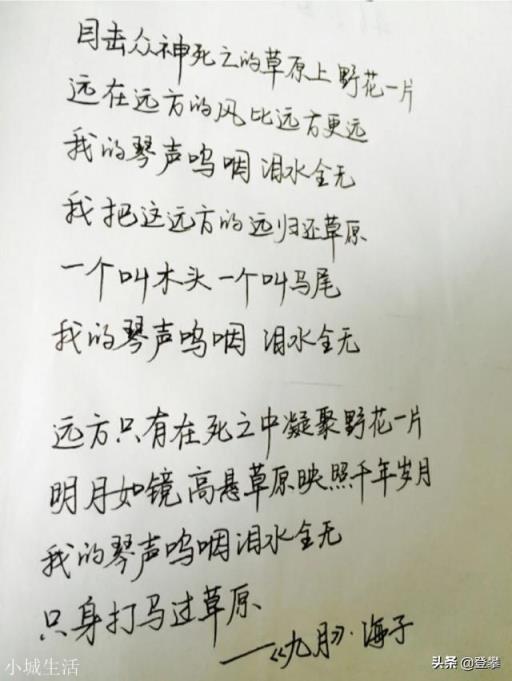 目击众神死亡的草原上野花一片
远在远方的风比远方更远
我的琴声呜咽 泪水全无
我把这远方的远归还草原
一个叫木头 一个叫马尾
我的琴声呜咽 泪水全无
远方只有在死亡中凝聚野花一片
明月如镜高悬草原映照千年岁月
我的琴声呜咽泪水全无
只身打马过草原
——《九月》·海子
小城生活
头条@登攀